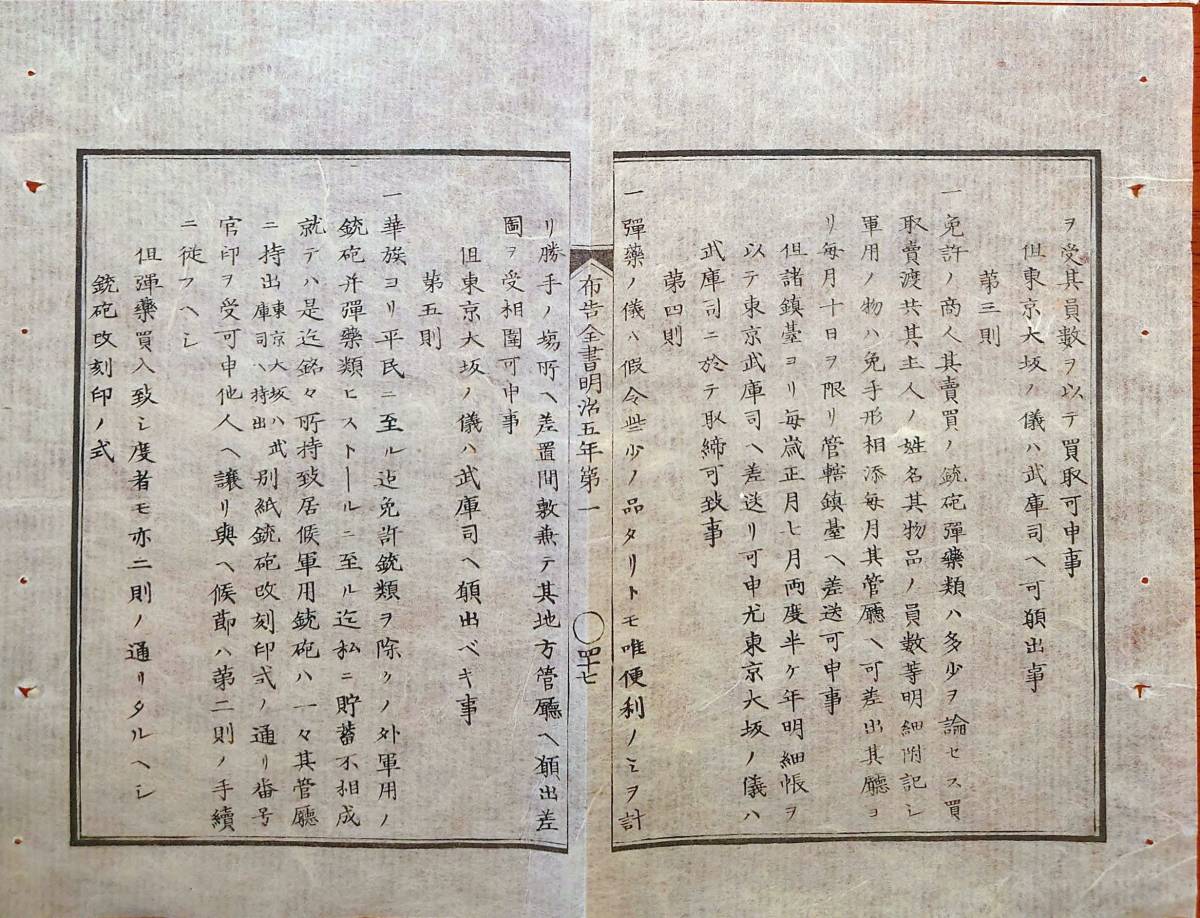 ヲ受其員數ヲ以テ買取可申事
但東京大坂ノ儀ハ武庫司ヘ可願出事
第三則
一免許ノ商人其賣買ノ銃砲彈藥類ハ多少ヲ論セス買
取賣渡共其主人ノ姓名其物品ノ員數等明細附記シ
軍用ノ物ハ免手形相添毎月其管廳ヘ可差出其廳ヨ
リ毎月十日ヲ限リ管轄鎮臺ヘ差送可申事
但諸鎮臺ヨリ毎歳正月七月両度半ケ年明細帳ヲ
以テ東京武庫司ヘ差送リ可申尤東京大坂ノ儀ハ
武庫司ニ於テ取締可致事
第四則
一彈藥ノ儀ハ假令些少ノ品タリトモ唯便利ノミヲ計
布告全書明治五年第一
〇四十七
リ勝手ノ場所ヘ差置間敷兼テ其地方管廳ヘ願出差
圖ヲ受相圍可申事
但東京大坂ノ儀ハ武庫司ヘ願出ベキ事
第五則
一華族ヨリ平民ニ至ル迄免許銃類ヲ除クノ外軍用ノ
銃砲并彈藥類ヒストールニ至ル迄私ニ貯蓄不相成
就テハ是迄銘々所持致居候軍用銃砲ハ一々其管廳
ニ持出東京大坂ハ武庫司ヘ持出別紙銃砲改刻印式ノ通リ番号
官印ヲ受可申他人ヘ讓リ與ヘ候節ハ第二則ノ手續
ニ從フヘシ
但彈藥買入致シ度者モ亦二則ノ通リタルヘシ
銃砲改刻印ノ式